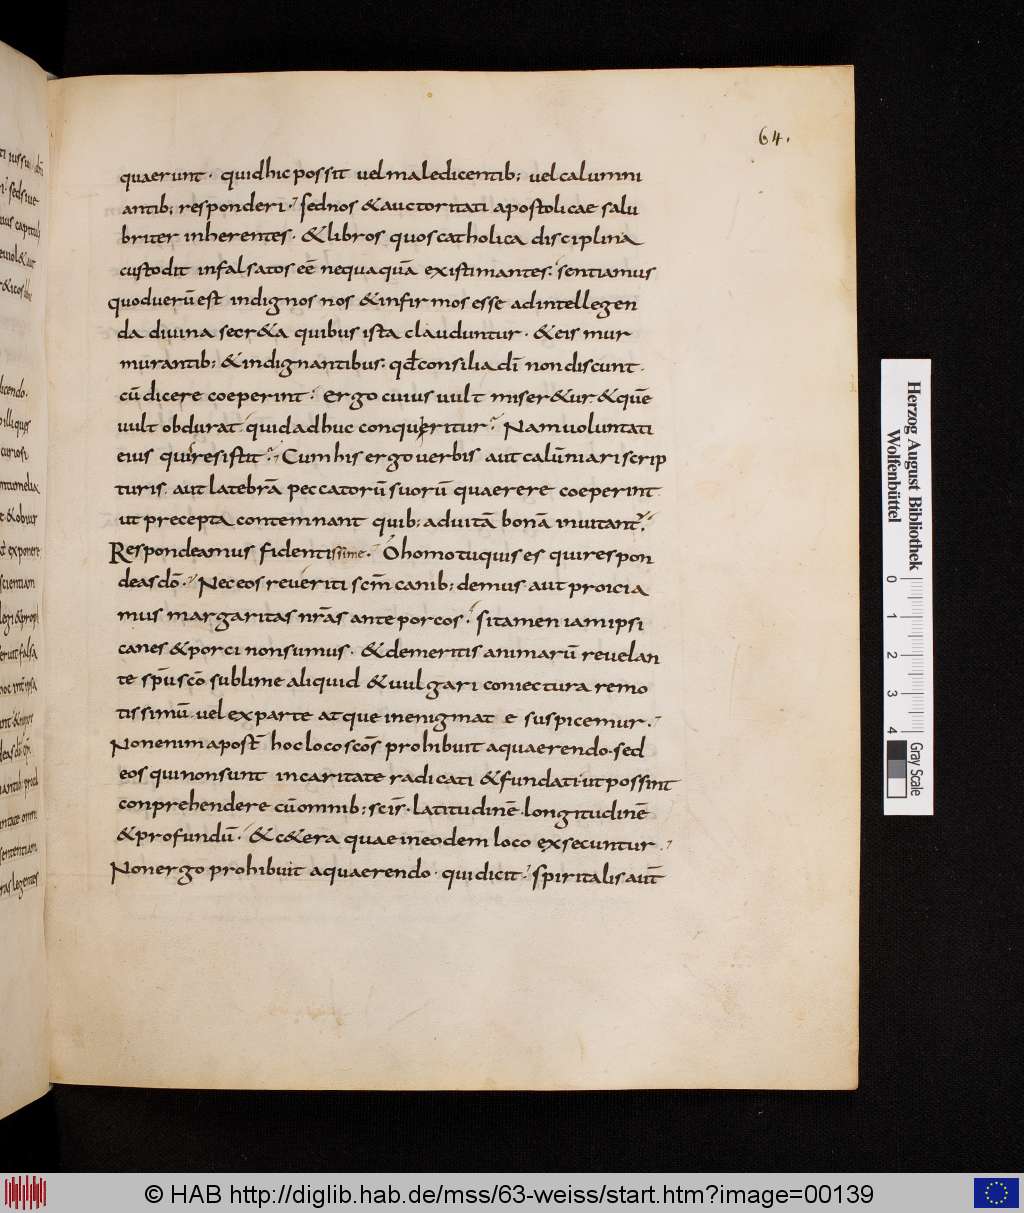 64.
quaerunt· quid hic possit uel maledicentib; uel calumni
antib; responderi· sed nos &auctoritati apostolicae salu
briter inherentes· &libros quos catholica disciplina
custodit infalsatos eē nequaquā existimantes· sentiamus
quod uerū est indignos nos &infirmos esse ad intellegen
da diuina secr&a quibus ista clauduntur· &eis mur
murantib; &indignantibus· qđ consilia dī non discunt·
cū dicere coeperint· ergo cuius uult miser&ur &quē
uult obdurat quid adhuc conqueritur· Nam uoluntati
eius qui resistit· Cum his ergo uerbis aut calūniari scrip
turis aut latebrā peccatorū suorū quaerere coeperint
ut precepta contemnant quib; ad uitā bonā inuitant
Respondeamus fidentissime· O homo tu quis es qui respon
deas dō· Nec eos reueriti scm̄ canib; demus aut proicia
mus margaritas nr̄as ante porcos· si tamen iam ipsi
canes &porci non sumus· &de meritis animarū reuelan
te sp̄u scō sublime aliquid &uulgari coniectura remo
tissimū uel ex parte atque in enigmat e suspicemur·
Non enim apost̄ hoc loco scōs prohibuit a quaerendo· sed
eos qui non sunt in caritate radicati &fundati ut possint
conprehendere cū omnib; scīs· latitudinē longitudinē
&profundū· &c&era quae in eodem loco exsecuntur·
Non ergo prohibuit a quaerendo· qui dicit· spiritalis aūt
Herzog August Bibliothek
Wolfenbüttel
0 1 2 3 4
Gray Scale
© HAB http://diglib.hab.de/mss/63-weiss/start.htm?image=00139